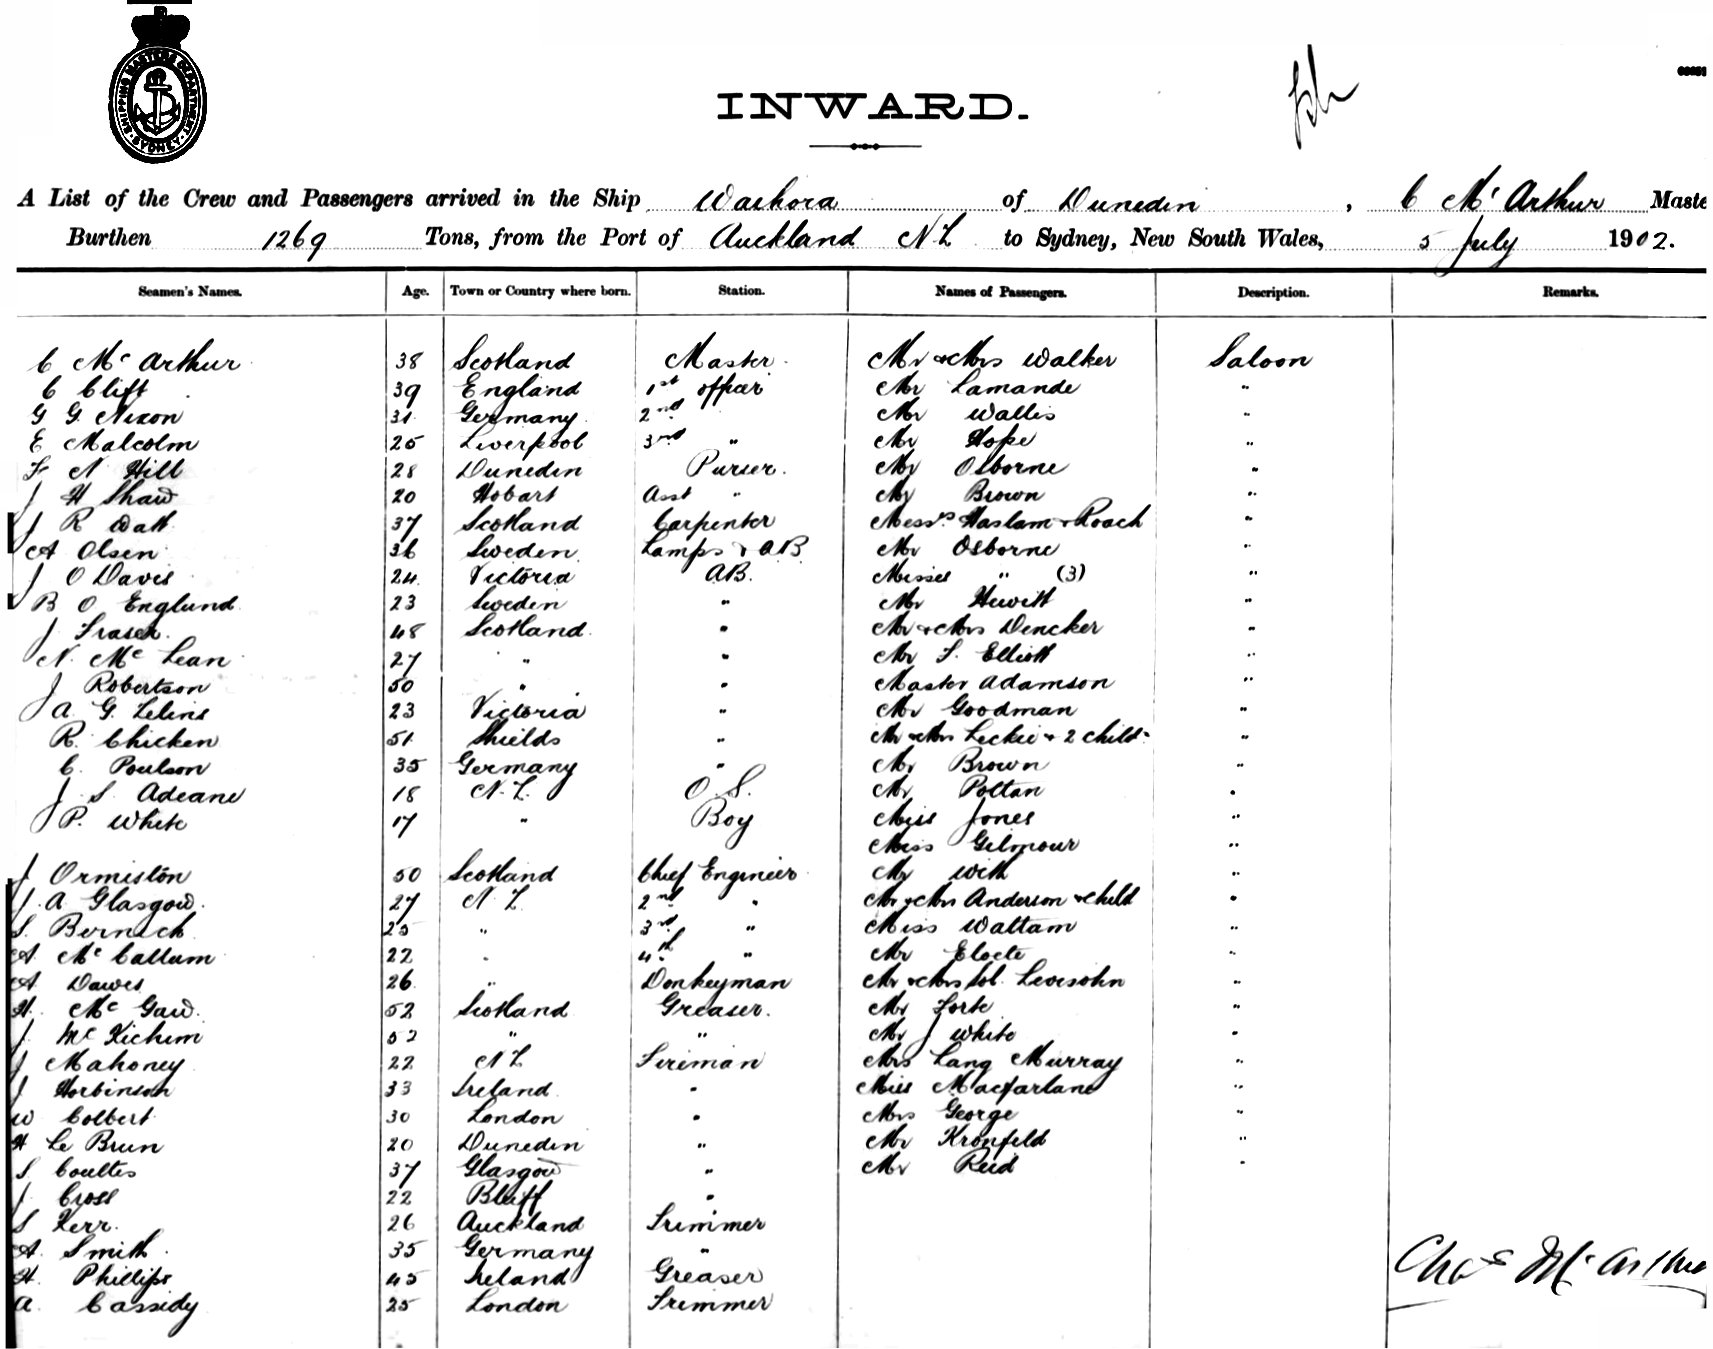 SHIPPING MASTERS DEPARTMENT
SYDNEY
INWARD.
A List of the Crew and Passengers arrived in the Ship Waihora of Dunedin, C McArthur Maste
Burthen 1269 Tons, from the Port of Auckland NZ to Sydney, New South Wales, 5 July 1902.
Seamen's Names. Age. Town or Country where born. Station. Names of Passengers. Description. Remarks.
C McArthur 38 Scotland Master Mr & Mrs Walker Saloon
C Clift 39 England 1st officer Mr Lamande "
G G Nixon 31 Germany 2nd Mr Wallis "
E Malcolm 25 Liverpool 3rd " Mr Hope "
F N Hill 28 Dunedin Purser. Mr Osborne "
J H Shaw 20 Hobart Asst " Mr Brown "
J R Watt 37 Scotland Carpenter Messrs Haslam & Roach "
A Olsen 36 Sweden Lamps & AB Mr Osborne "
J O Davis 24 Victoria AB. Misses " (3) "
B O Englund 23 Sweden " Mr Hewitt "
J Fraser. 48 Scotland " Mr & Mrs Dencker "
N. McLean 27 " " Mr F. Elliott "
J Robertson 50 " " Master Adamson "
A. G. 23 Victoria " Mr Goodman "
R. Chicken 51 Shields " Mr & Mrs Leckie & 2 child "
C. Poulson 35 Germany " Mr Brown "
J S Adeane 18 N.Z. O.S. Mr "
P. White 17 " Boy Miss Jones "
Miss Gilmour "
J Ormiston 50 Scotland Chief Engineer Mr With "
J. A Glasgow. 27 NZ 2nd " Mr & Mrs Anderson & child "
S. 25 " 3rd " Miss Waltam "
A. McCallum 22 " 4th " Mr "
A Dawes 26 " Donkeyman Mr & Mrs Levisohn "
H. McGaw. 52 Scotland Greaser. Mr Forte "
J. 52 " " Mr J White "
J Mahoney 22 NZ Fireman Mrs Lang Murray "
J Horbinson 33 Ireland " Miss Macfarlane "
W Colbert 30 London " Mrs George "
H Le Brun 20 Dunedin " Mr Kronfeld "
S Coultes 37 Glasgow " Mr Reid "
J. Cross 22 Bluff "
S Kerr. 26 Auckland Trimmer
A. Smith 35 Germany "
H. Phillips 45 Ireland Greaser
A. Cassidy 25 London Trimmer
Chas McArthur